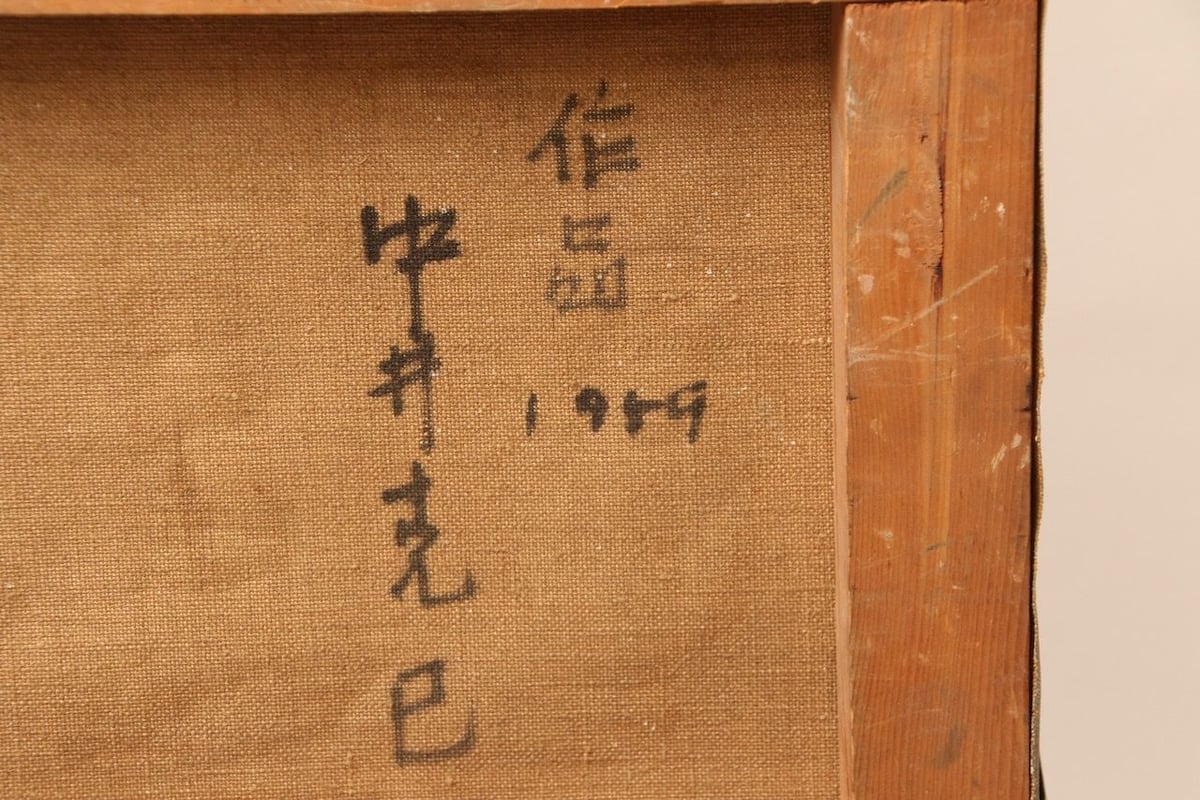 作品
1989
中井克巳